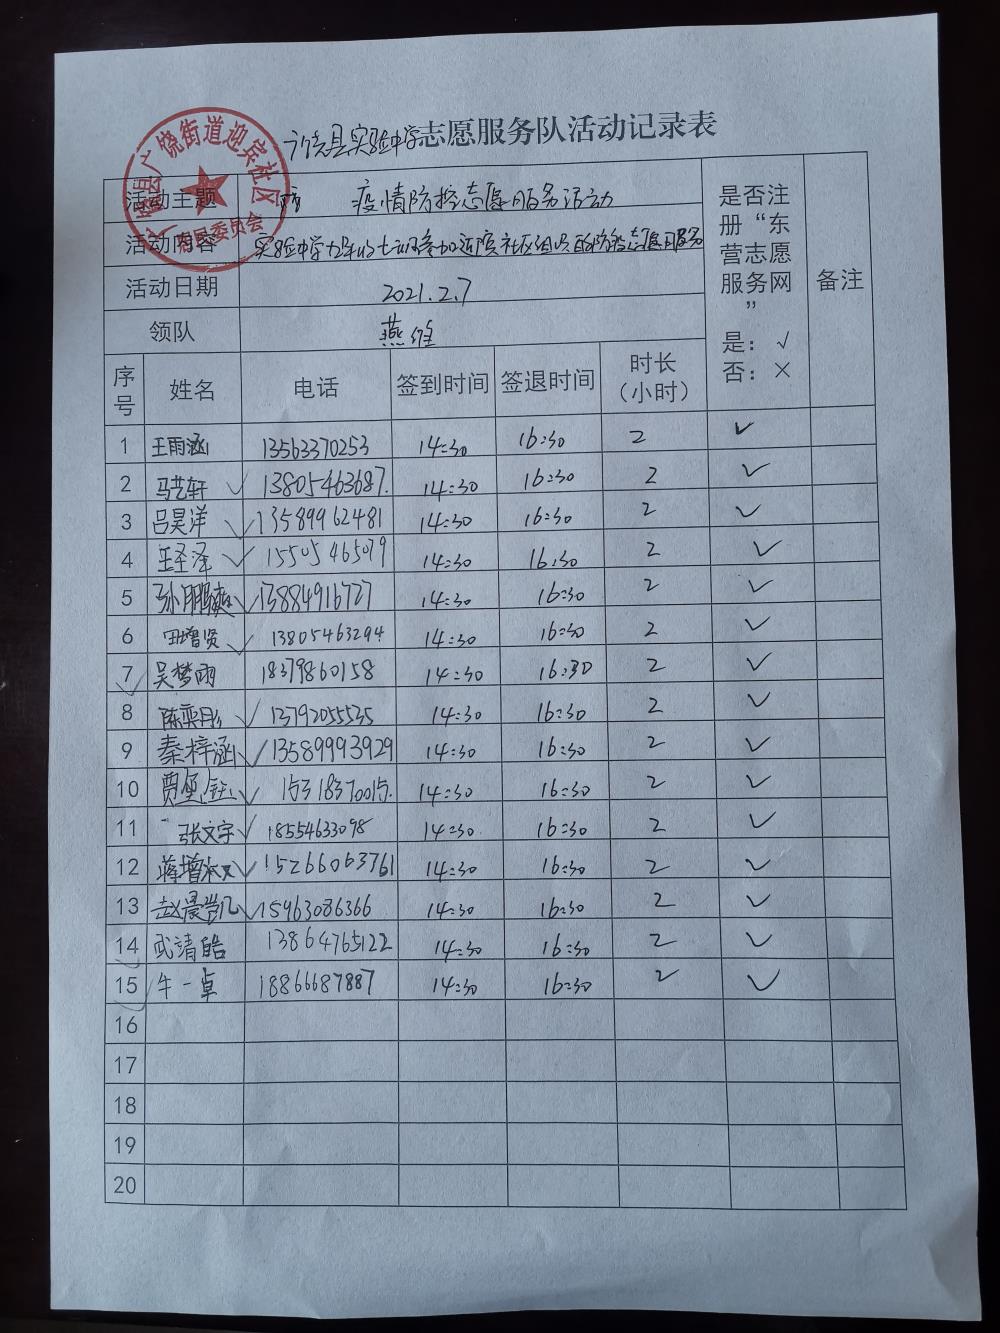 广饶县实验中学志愿服务队活动记录表
广饶县广饶街道迎宾社区
居民委员会
活动主题 疫情防控志愿服务活动
活动内容 实验中学 参加迎宾社区组织的防控志愿服务
活动日期 2021.2.7
领队 燕
是否注
册“东
营志愿
服务网
”
是：√
否：×
备注
序号 姓名 电话 签到时间 签退时间 时长（小时）
1 王雨涵 13563370253 14:30 16:30 2 ✓
2 马艺轩 ✓ 13805463687. 14:30 16:30 2 ✓
3 吕昊洋 ✓ 13589962481 14:30 16:30 2 ✓
4 王泽 ✓ 15505465079 14:30 16:30 2 ✓
5 孙鹏 ✓ 13884916727 14:30 16:30 2 ✓
6 田增贤 ✓ 13805463294 14:30 16:30 2 ✓
7 ✓ 吴梦雨 18379860158 14:30 16:30 2 ✓
8 陈奕彤 ✓ 13792055535 14:30 16:30 2 ✓
9 秦梓涵 ✓ 13589993929 14:30 16:30 2 ✓
10 贾堡钰 ✓ 15318370015. 14:30 16:30 2 ✓
11 张文宇 ✓ 18554633098 14:30 16:30 2 ✓
12 蒋增 ✓ 15266063761 14:30 16:30 2 ✓
13 赵晨凯 ✓ 15963086366 14:30 16:30 2 ✓
14 ✓ 武靖皓 13864765122 14:30 16:30 2 ✓
15 ✓ 牛一卓 18866687887 14:30 16:30 2 ✓
16
17
18
19
20